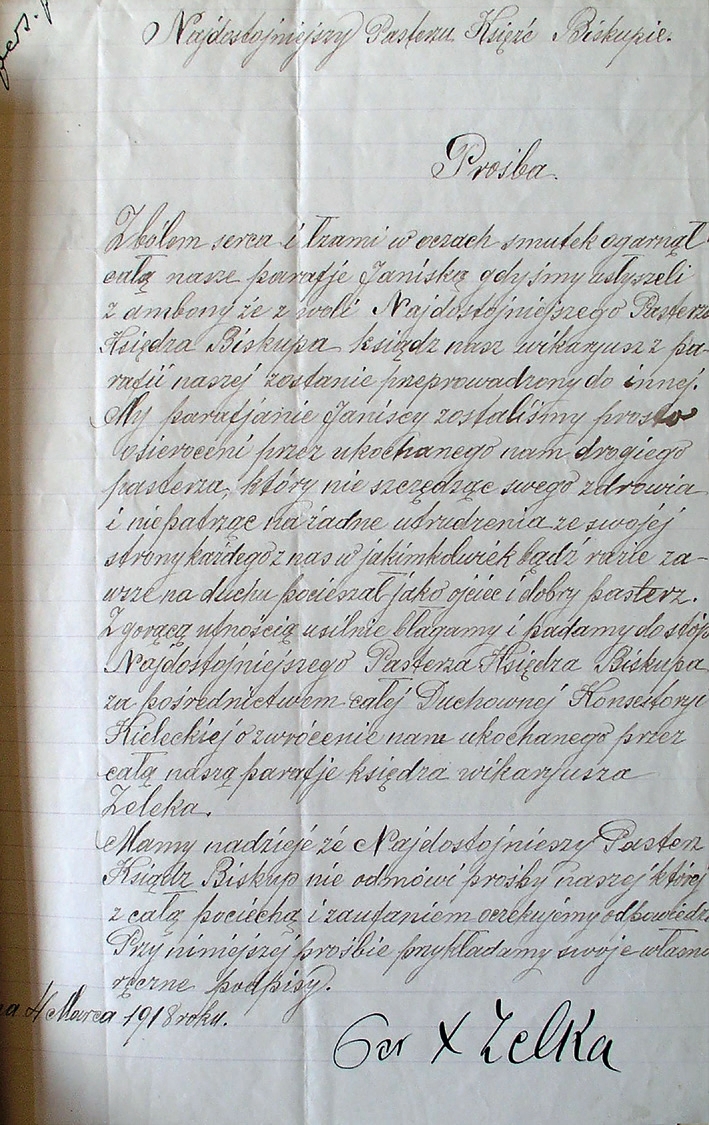 pers.
Najdostojniejszy Pasterzu Księże Biskupie.
Prośba.
Zbólem serca i łzami w oczach smutek ogarnął
całą nasze parafje Janiską gdyśmy usłyszeli
z ambony że z woli Najdostojniejszego Pasterza
Księdza Biskupa ksiądz nasz wikarjusz z pa-
rafii naszej zostanie przeprowadzony do innej.
My parafjanie Janiscy zostaliśmy prosto
osieroceni przez ukochanego nam drogiego
pasterza, który nie szczędząc swego zdrowia
i niepatrząc na żadne utrudzenia ze swojéj
strony każdego z nas w jakimkolwiek bądź razie za-
wsze na duchu pocieszał jako ojciec i dobry pasterz.
Z gorącą ufnością usilnie błagamy i padamy do stóp
Najdostojniejszego Pasterza Księdza Biskupa
za pośrednictwem całej Duchownej Konsestorji
Kieleckiéj o zwrócenie nam ukochanego przez
całą naszą parafje księdza wikarjusza
Zeleka.
Mamy nadzieję że Najdostojnieszy Pasterz
Ksiądz Biskup nie odmówi prośby naszej której
z całą pociechą i zaufaniem oczekujemy odpowiedzi
Przy niniejszej prośbie przykładamy swoje własno
ręczne podpisy.
na 4 Marca 1918 roku.
X Zelka